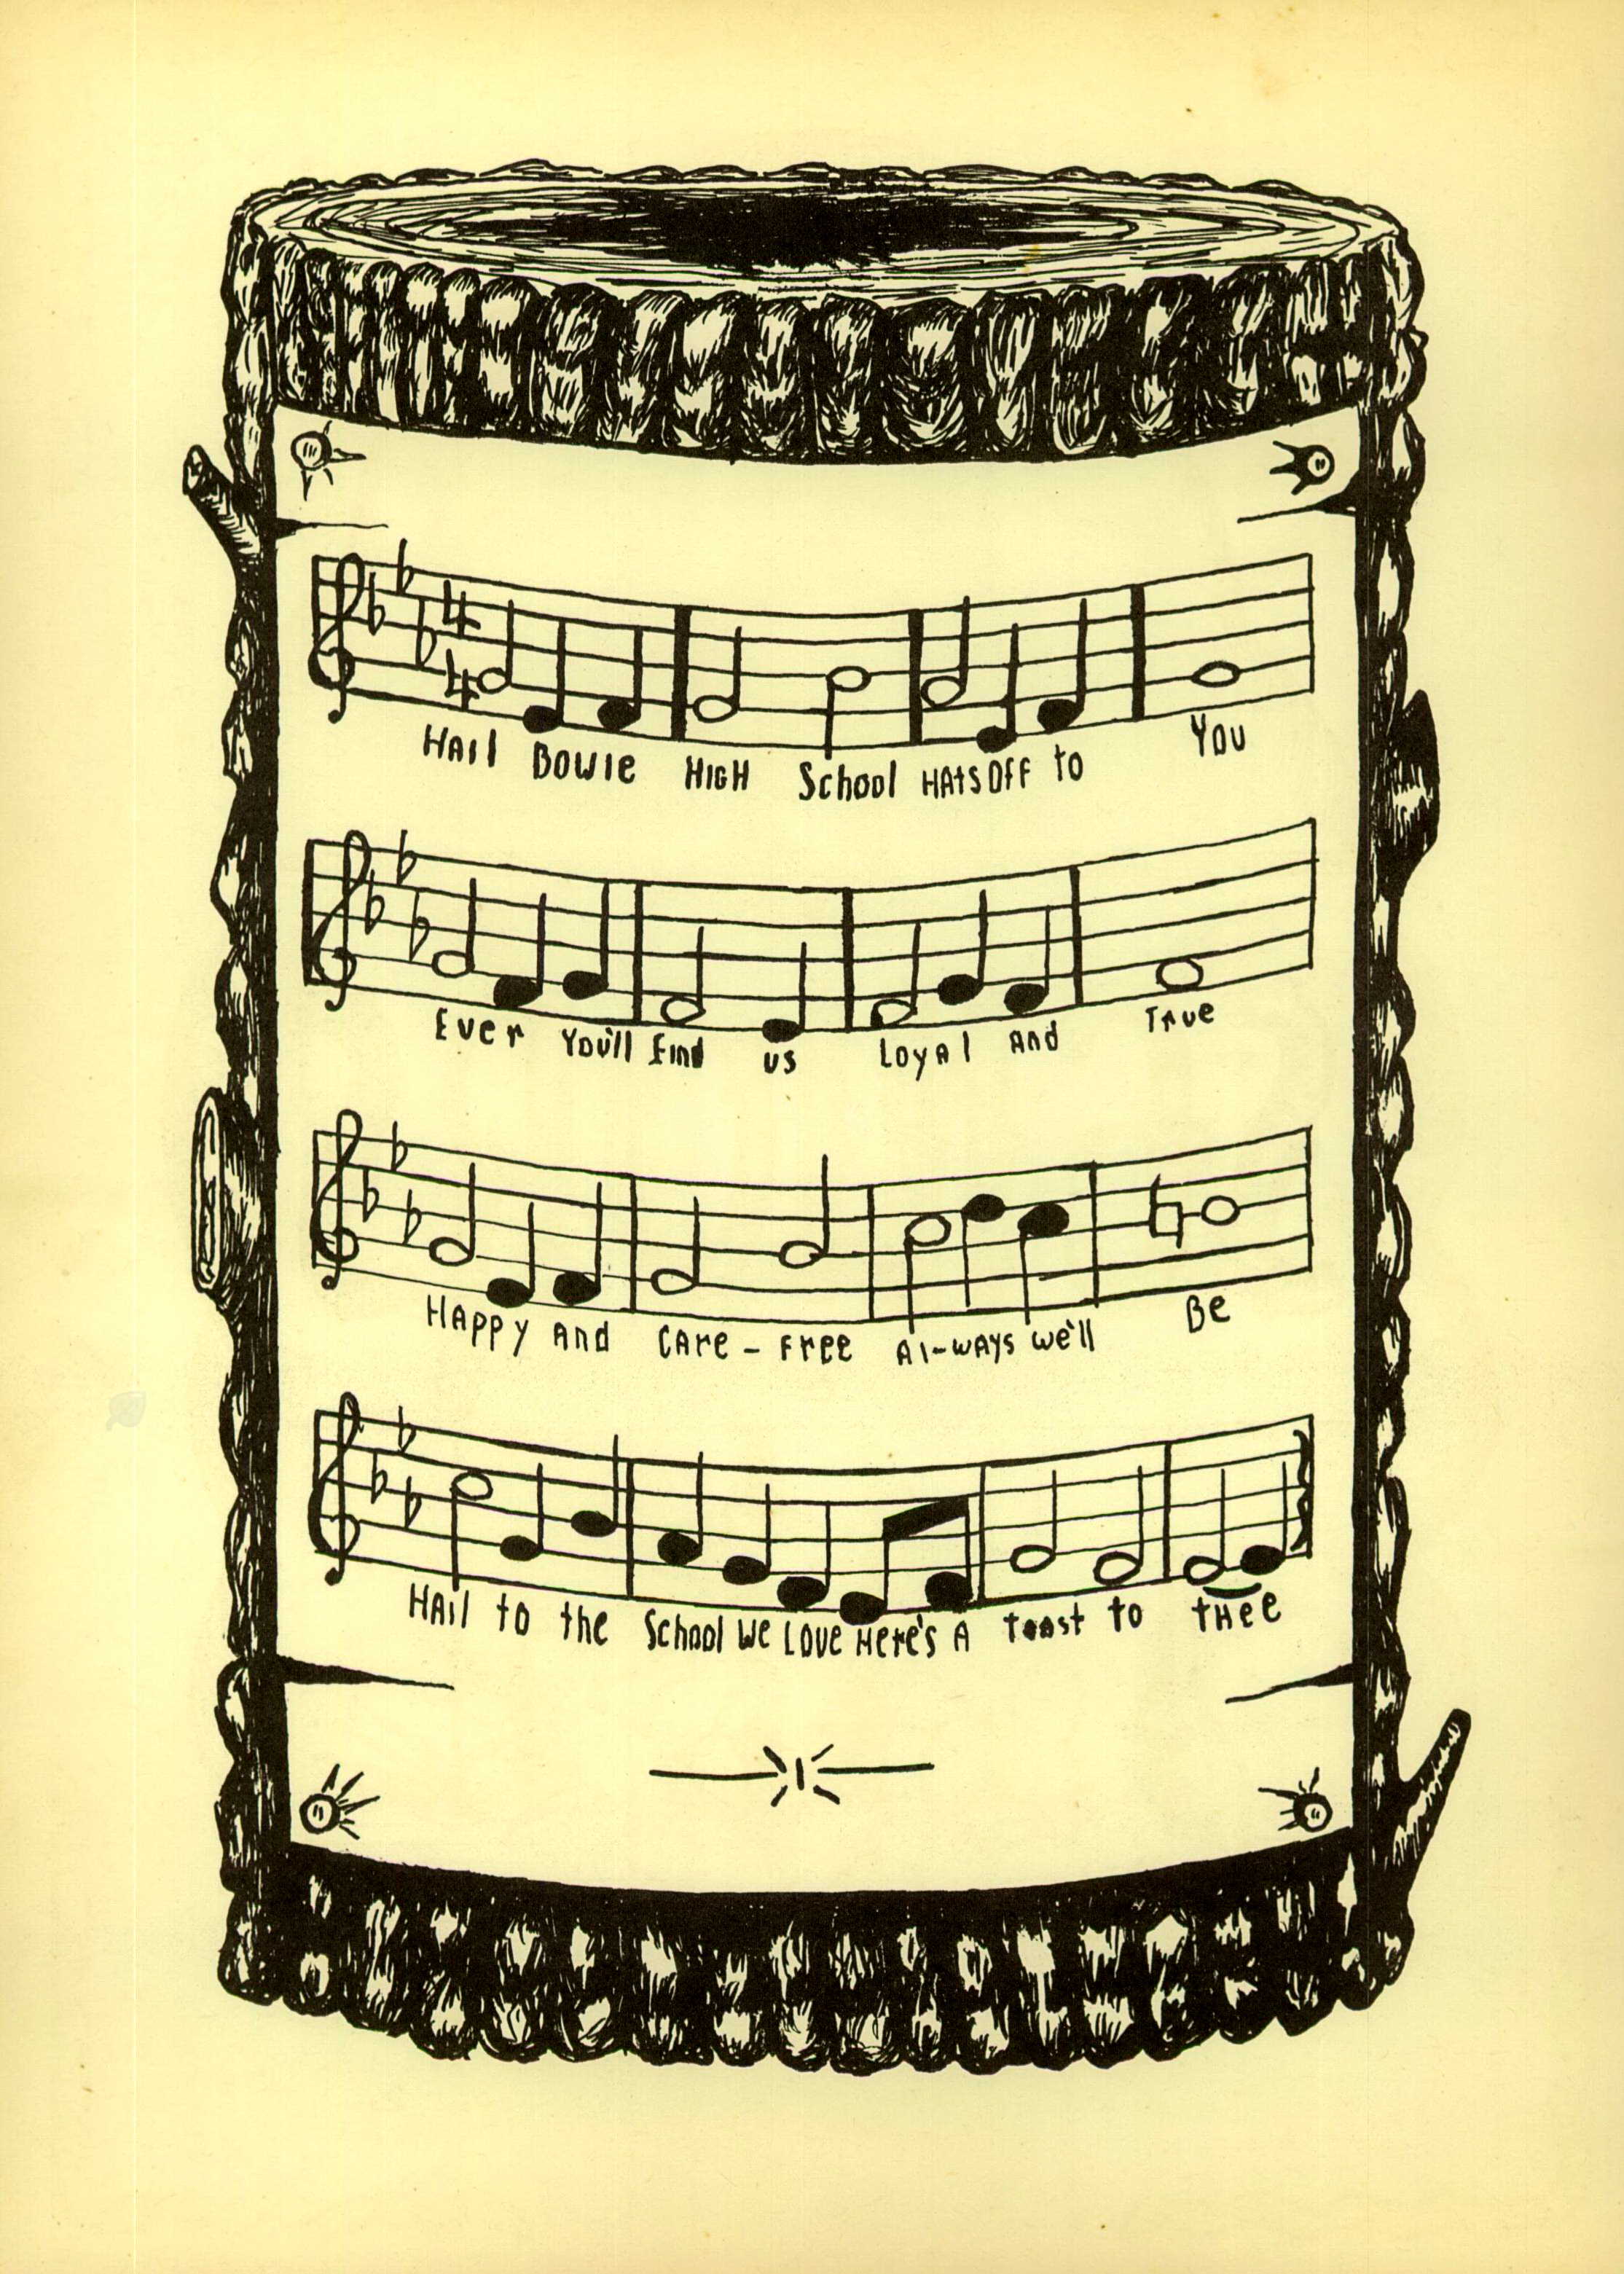 4
4
HAil Bowie HiGH School HAtsOff to You
Ever You'll Find us LoyAl And True
HAppy And CAre - Free Al-wAys we'll Be
HAil to the School We Love Here's A toast to tHee